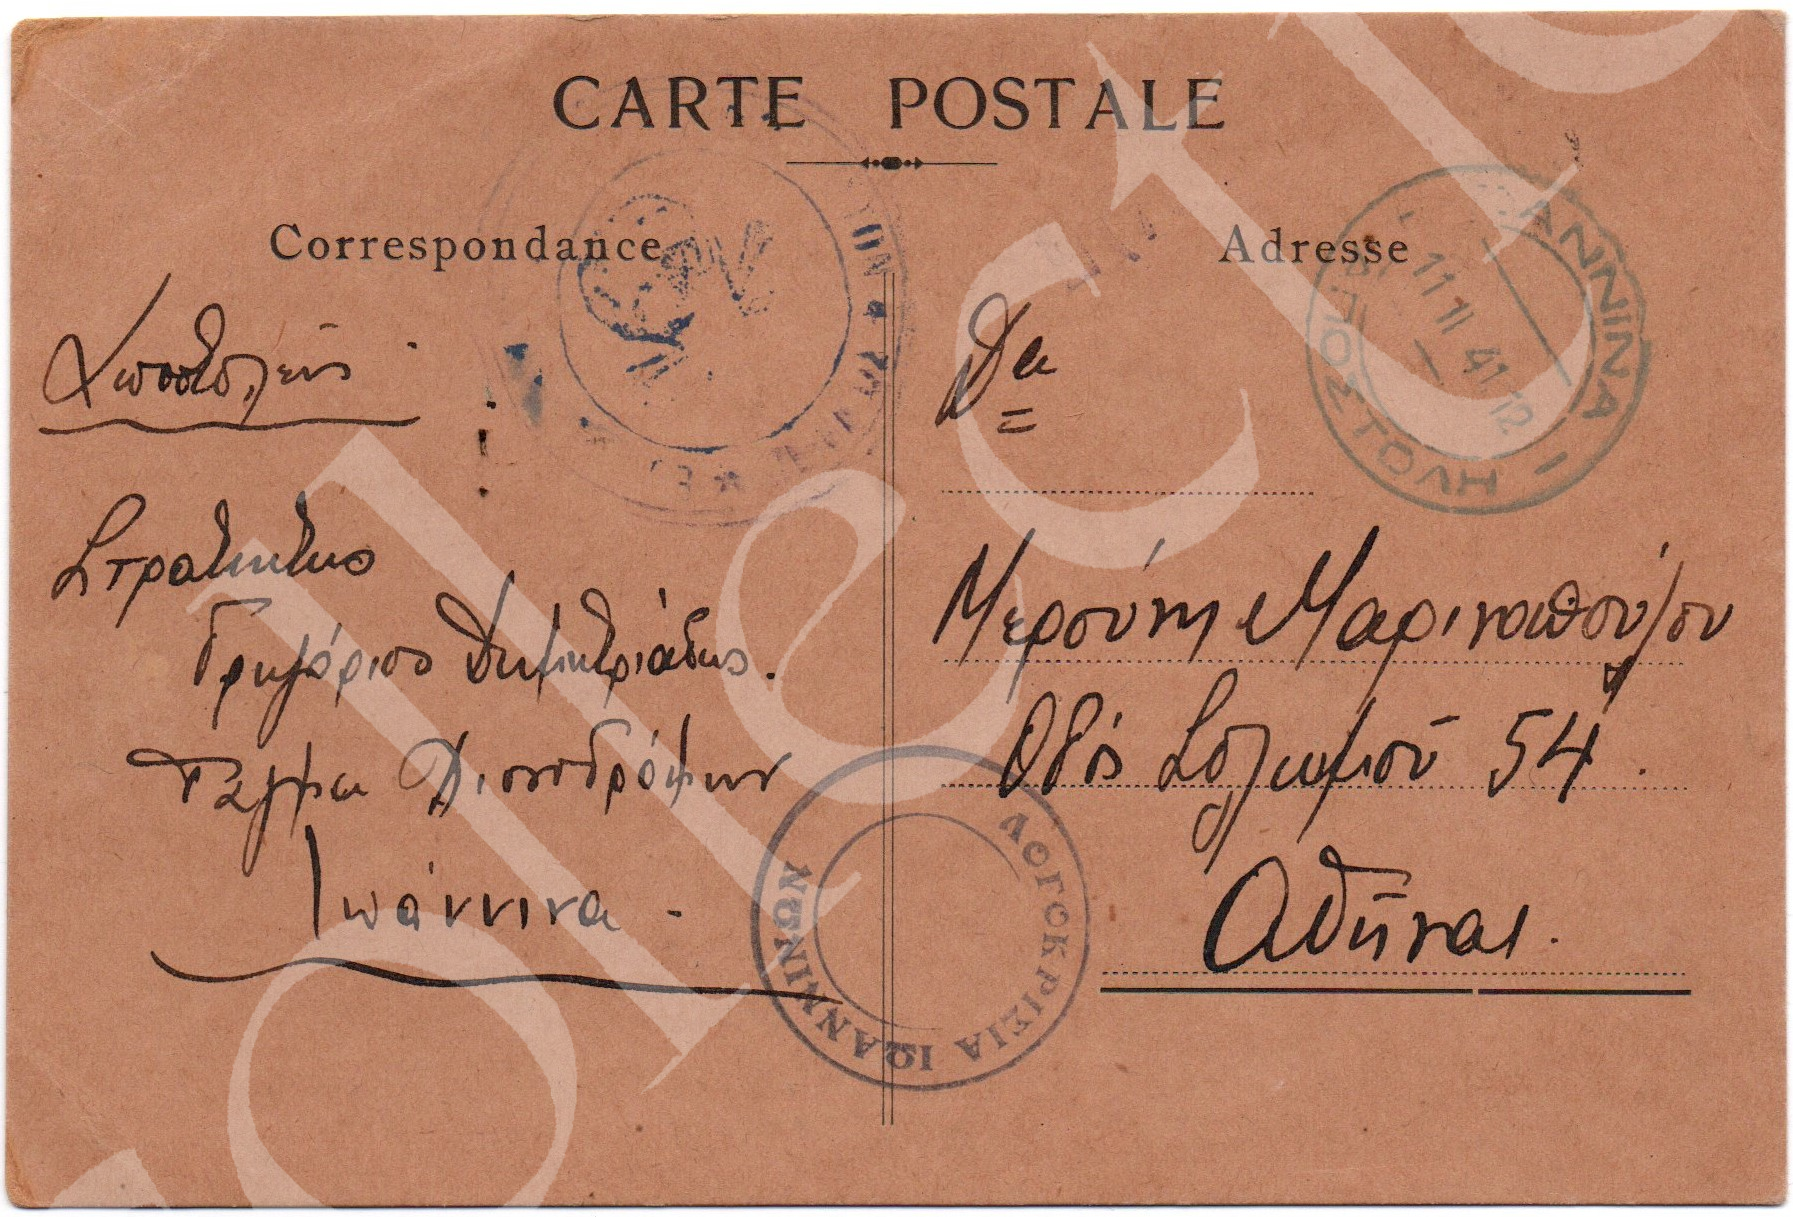 CARTE POSTALE
Correspondance
Adresse
Στρατιώτης
Γρηγόριος Δημητριάδης.
Τάγμα Χιονοδρόμων
Ιωάννινα -
Δα
Μερόπη Μαρινοπούλου
Οδός Σολωμού 54.
Αθήνας.
ΙΩΑΝΝΙΝΑ
ΑΠΟΣΤΟΛΗ
11 II 41 12
ΛΟΓΟΚΡΙΣΙΑ ΙΩΑΝΝΙΝΩΝ
collect